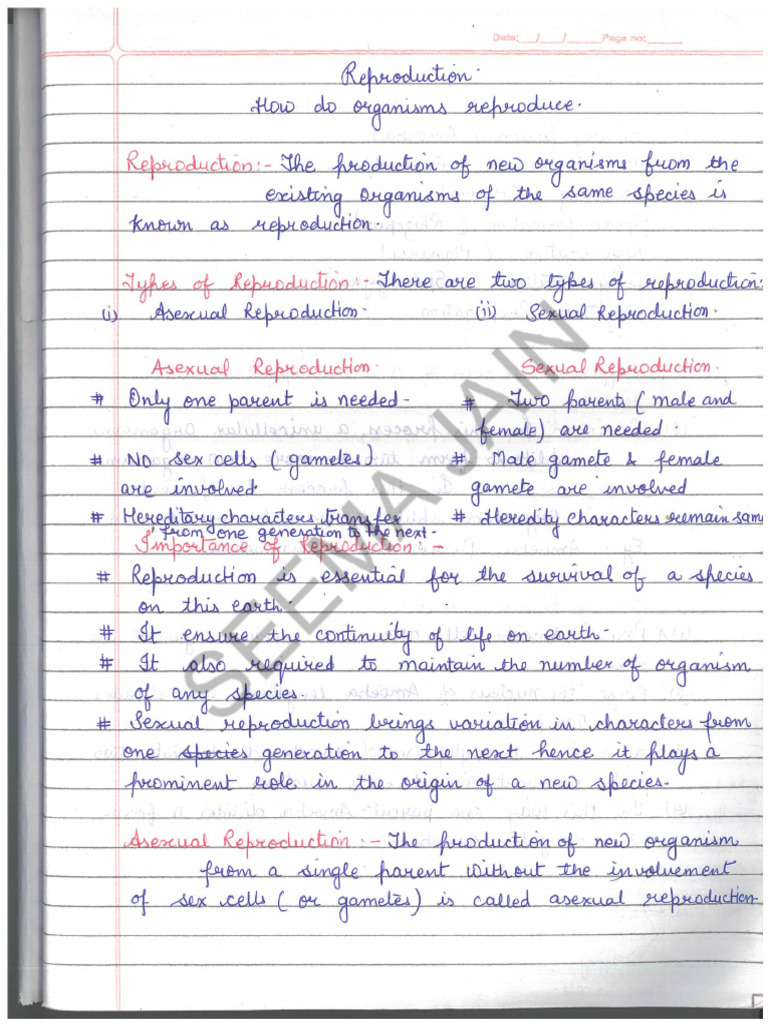 Date: __/__/____ Page no:_____
Reproduction.
How do organisms reproduce.
Reproduction:- The production of new organisms from the
existing organisms of the same species is
known as reproduction.
Types of Reproduction:- There are two types of reproduction:
(i) Asexual Reproduction. (ii) Sexual Reproduction.
Asexual Reproduction. Sexual Reproduction.
# Only one parent is needed- # Two parents ( male and
female) are needed
# No sex cells ( gametes) # Male gamete & female
are involved gamete are involved
# Hereditary characters transfer # Heredity characters remain same
from one generation to the next-
Importance of Reproduction:-
# Reproduction is essential for the survival of a species
on this earth.
# It ensure the continuity of life on earth-
# It also required to maintain the number of organism
of any species.
# Sexual reproduction brings variation in characters from
one species generation to the next hence it plays a
prominent role in the origin of a new species.
Asexual Reproduction:- The production of new organism
from a single parent without the involvement
of sex cells ( or gametes) is called asexual reproduction-
SEEMA JAIN